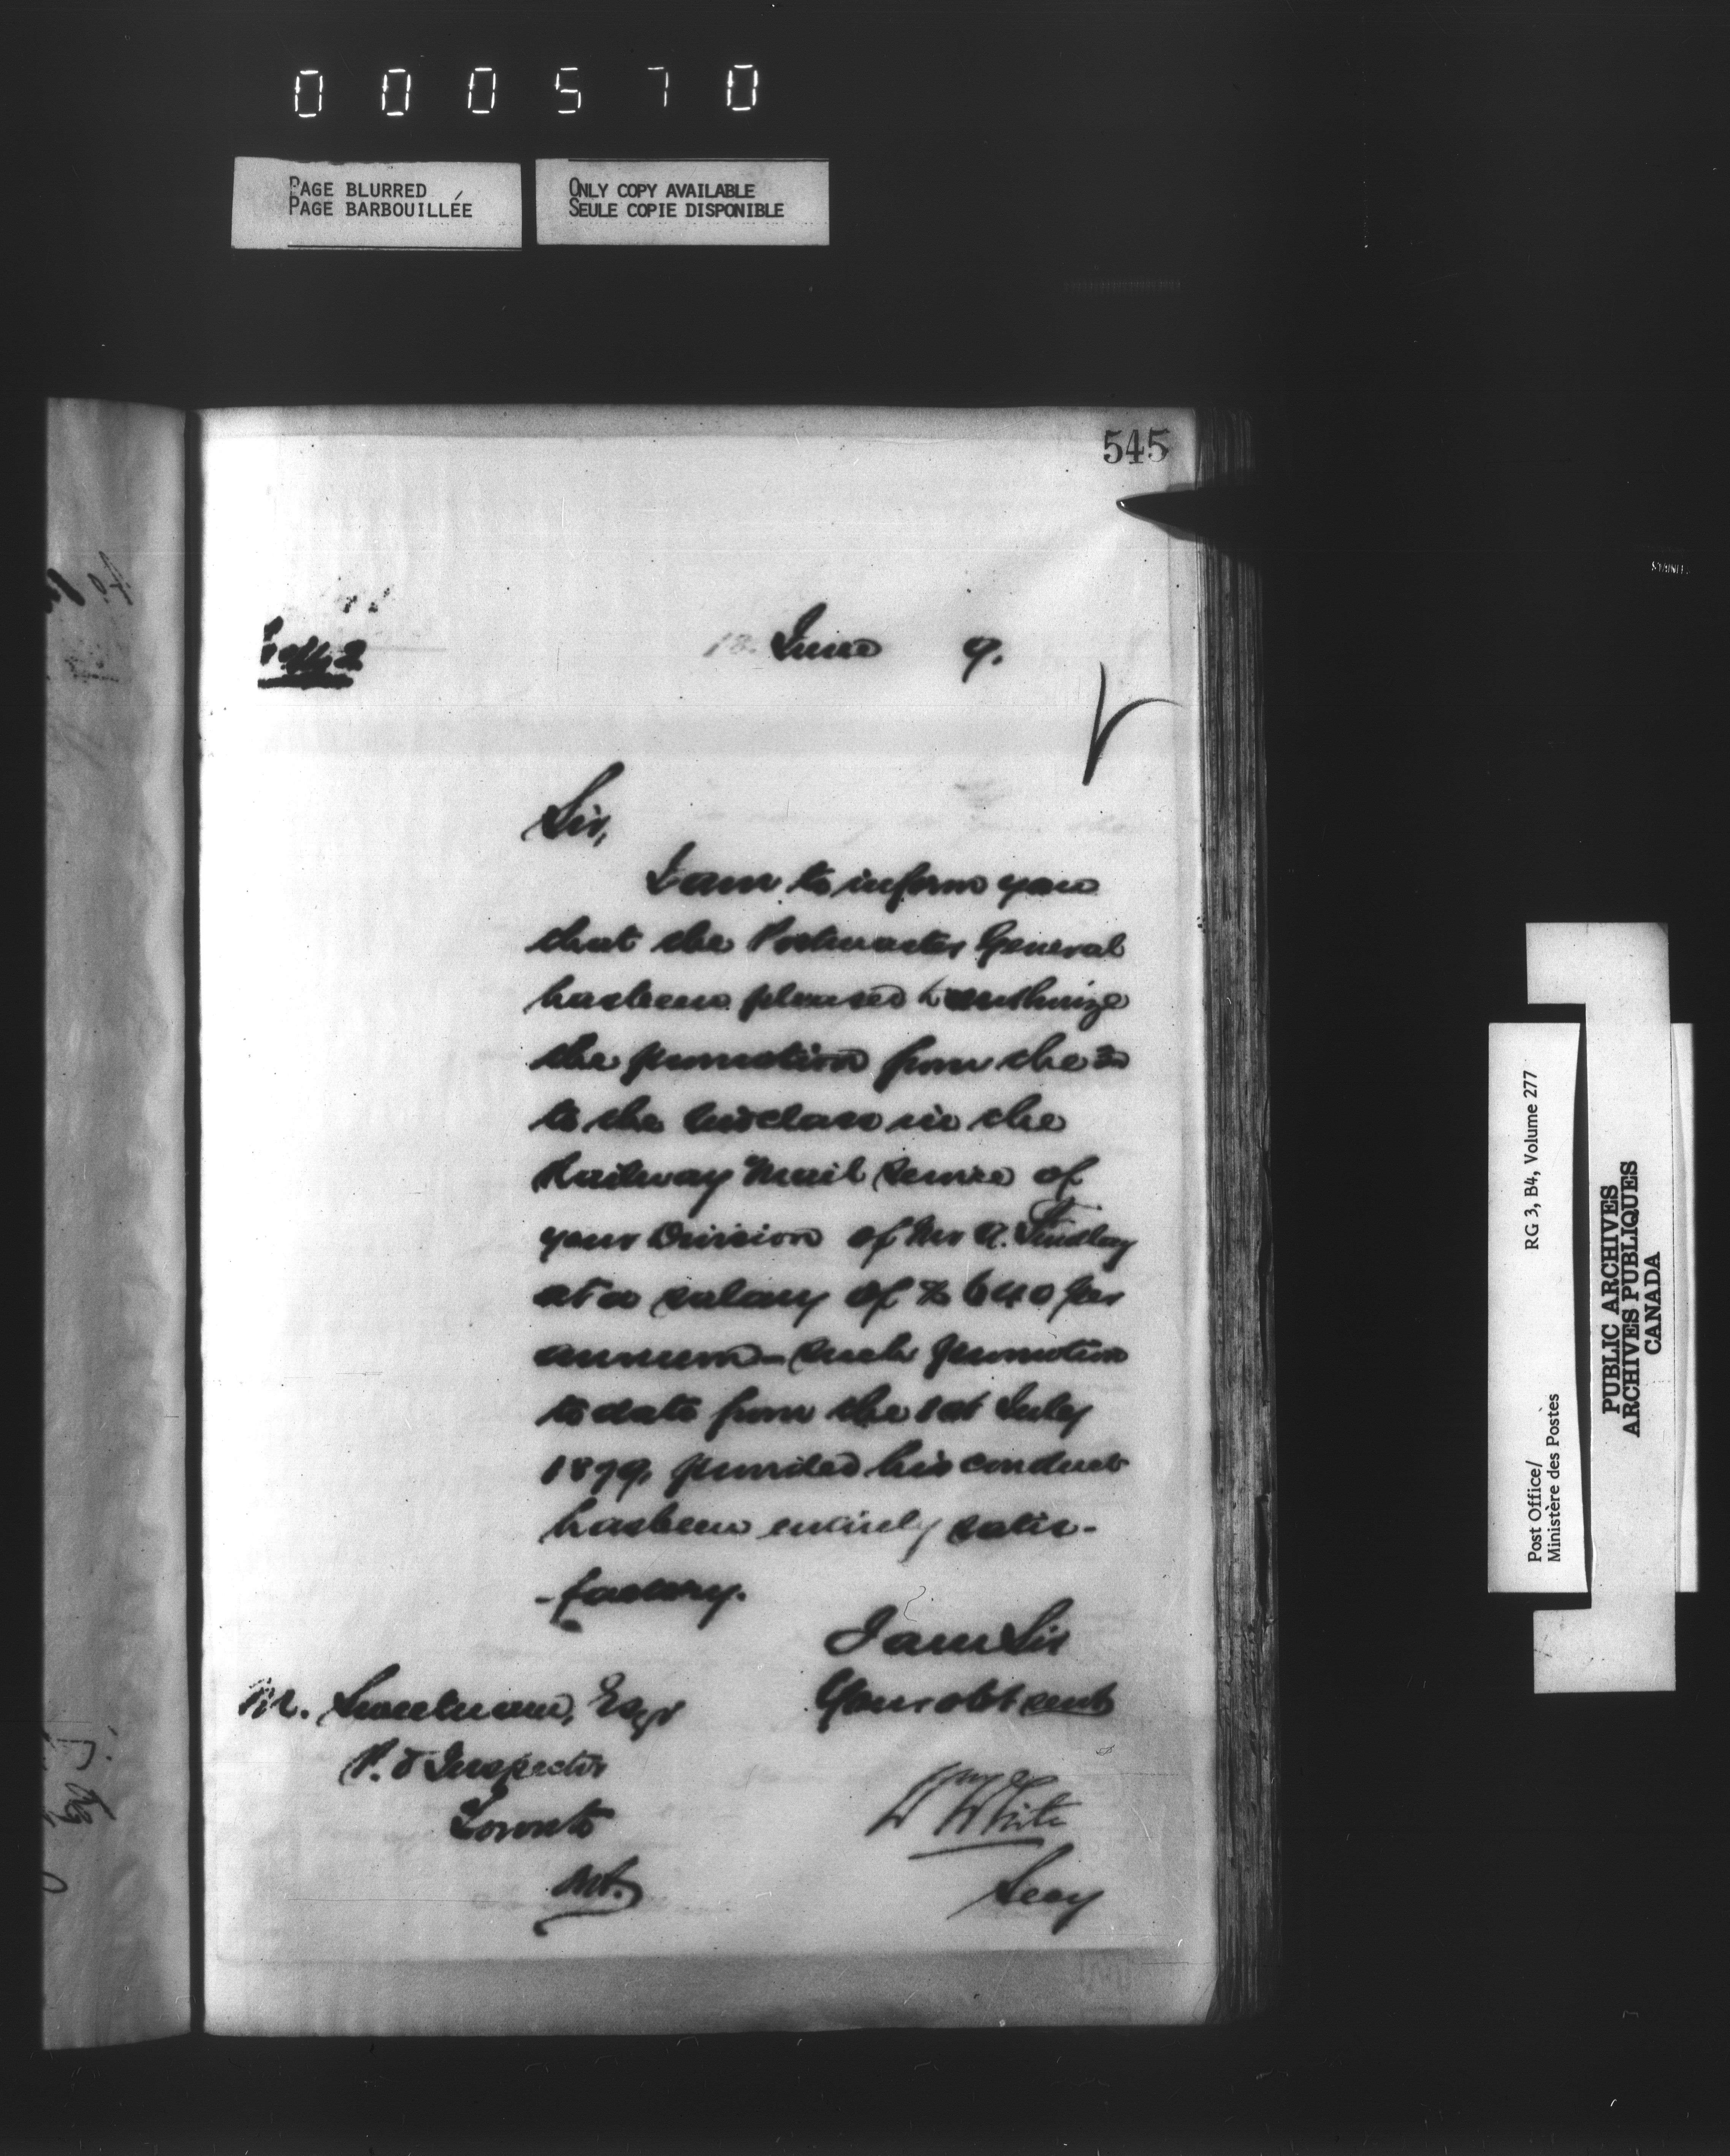 000570
PAGE BLURRED
PAGE BARBOUILLÉE
ONLY COPY AVAILABLE
SEULE COPIE DISPONIBLE
545
18. June 9.
Sir,
I am to inform you
that the Postmaster General
has been pleased to authorize
the promotion from the 3d
to the 2nd class in the
Railway Mail Service of
your Division of Mr A. Findlay
at a salary of $640 per
annum - such promotion
to date from the 1st July
1879, provided his conduct
has been entirely satis-
-factory.
I am Sir
Your obt servt
M. Sweetnam, Esqr
P. O Inspector
Toronto
Wm White
Secy
RG 3, B4, Volume 277
Post Office/
Ministère des Postes
PUBLIC ARCHIVES
ARCHIVES PUBLIQUES
CANADA